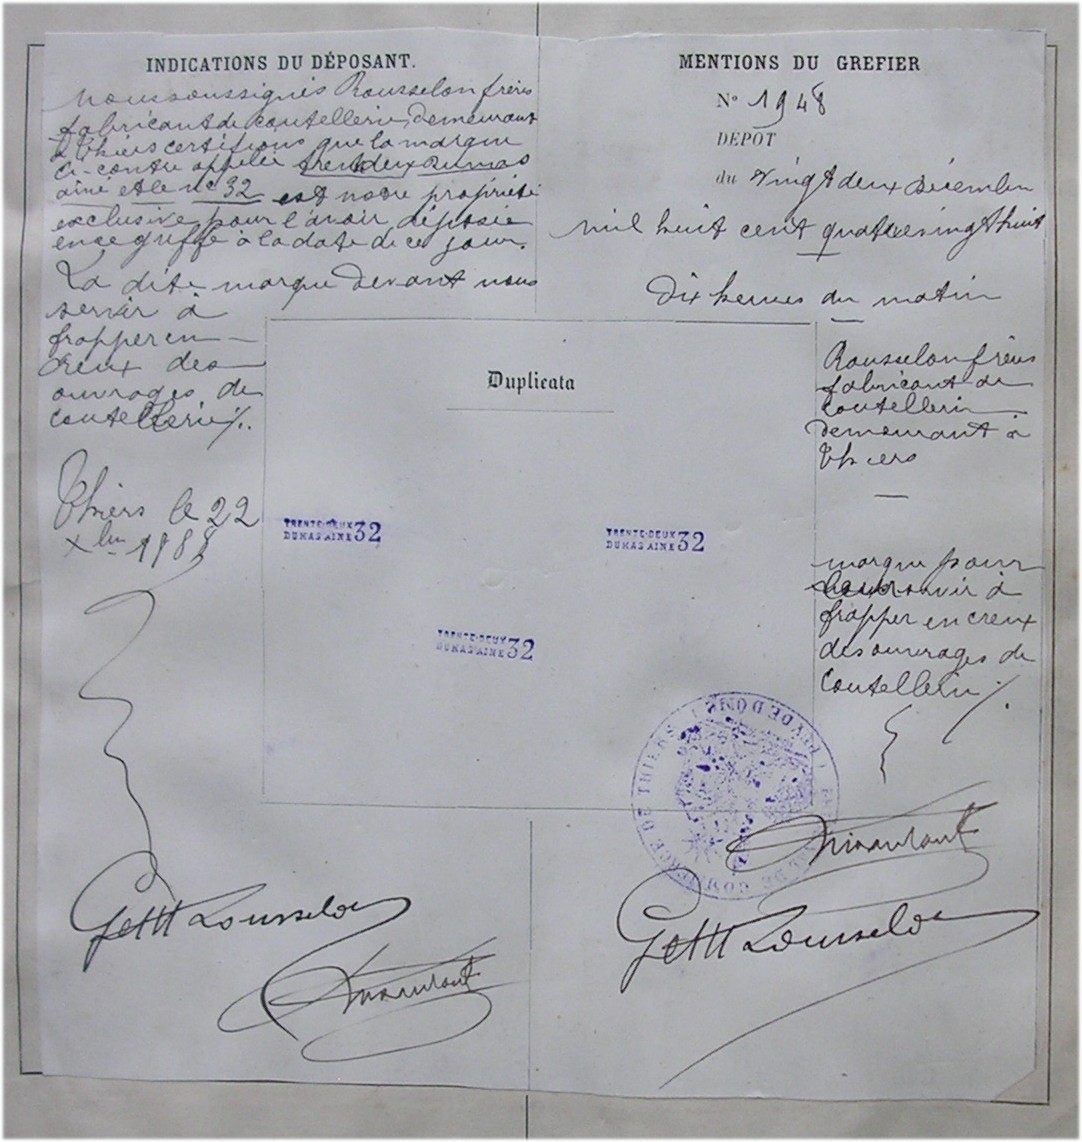 INDICATIONS DU DÉPOSANT.
Nous soussignés Rousselon frères
fabricant de coutellerie, demeurant
à Thiers certifions que la marque
ci-contre appelée trente deux Dumas
ainé et le n° 32 est notre propriété
exclusive pour l'avoir déposée
en ce greffe à la date de ce jour.
La dite marque devant nous
servir à
frapper en
creux des
ouvrages de
coutellerie
Thiers le 22
Xbre 1888
MENTIONS DU GREFIER
N° 1948
DÉPOT
du vingt deux décembre
mil huit cent quatre vingt huit
Dix heures du matin
Rousselon frères
fabricant de
coutellerie
demeurant à
Thiers
marque pour
servir à
frapper en creux
des ouvrages de
coutellerie
Duplicata
TRENTE-DEUX 32
DUMAS AINE
TRENTE-DEUX 32
DUMAS AINE
TRENTE-DEUX 32
DUMAS AINE
TRIBUNAL DE COMMERCE DE THIERS (PUY DE DOME)
G et H Rousselon
G et H Rousselon